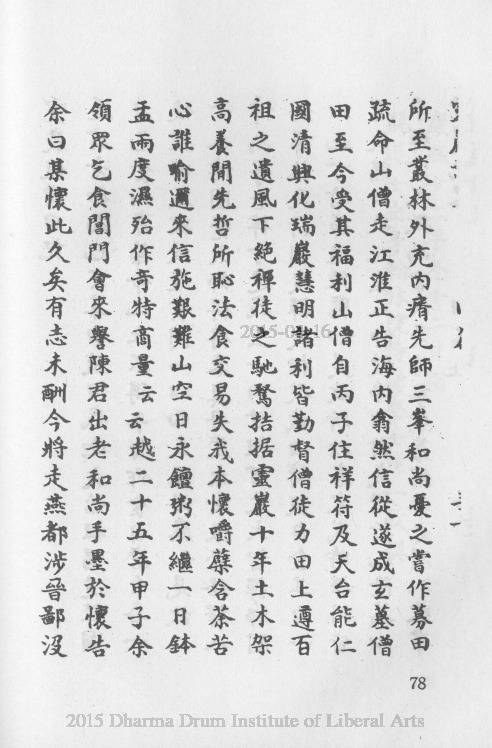 所至叢林外充內瘠先師三峯和尚憂之嘗作募田
疏命山僧走江淮正告海內翕然信從遂成玄墓僧
田至今受其福利山僧自丙子住祥符及天台能仁
國清興化瑞巖慧明諸利皆勤督僧徒力田上遵百
祖之遺風下絕禪徒之馳騖拮据靈巖十年土木架
高養間先哲所恥法食交易失我本懷嚼蘗含荼苦
心誰喻邇來信施艱難山空日永饘粥不繼一日鉢
盂兩度濕殆作奇特商量云云越二十五年甲子余
領眾乞食閶門會來譽陳君出老和尚手墨於懷告
余曰某懷此久矣有志未酬今將走燕都涉晉鄙沒
78
2015 Dharma Drum Institute of Liberal Arts